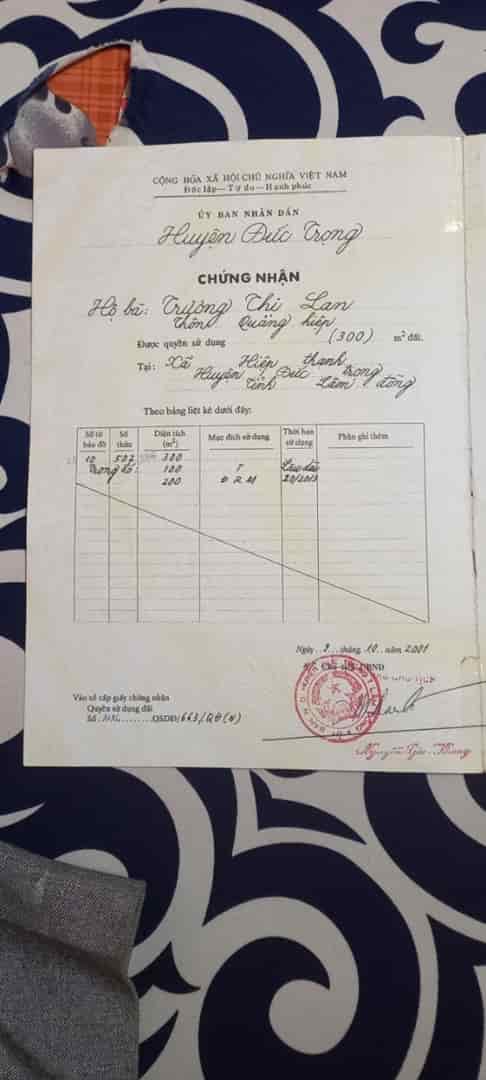 CỘNG HÒA XÃ HỘI CHỦ NGHĨA VIỆT NAM
Độc lập — Tự do — Hạnh phúc
ỦY BAN NHÂN DÂN
Huyện Đức Trọng
CHỨNG NHẬN
Hộ bà: Trương Thị Lan
Thôn Quảng hiệp
Được quyền sử dụng (300) m² đất.
Tại: Xã Hiệp thạnh
Huyện Đức trọng
Tỉnh Lâm đồng
Theo bảng liệt kê dưới đây:
Số tờ bản đồ Số thửa Diện tích (m²) Mục đích sử dụng Thời hạn sử dụng Phần ghi thêm
10 507 300
Trong đó: 100 T Lâu dài
200
Ngày 9 tháng 10 năm 2001
UBND
Vào sổ cấp giấy chứng nhận
Quyền sử dụng đất
Số QSDĐ/663/QĐ(H)